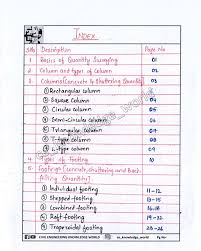 INDEX
S.No Description Page No
1 Basics of Quantity Surveying 01
2. Column and types of Column 02
3. Columns (Concrete & Shuttering Quantity) 03
① Rectangular column 03
② Square Column 04
③ Circular column 05
④ Semi-Circular column 06
⑤ Triangular column 07
⑥ T-type column 08
⑦ L-type column 09
4. Types of footing 10
5. Footings (Concrete, shuttering and Back
filling Quantity)
① Individual footing 11-12
② Stepped-footing 13-15
③ Combined footing 16-18
④ Raft footing 19-22
⑤ Trapezoidal footing 23-26
CIVIL ENGINEERING KNOWLEDGE WORLD